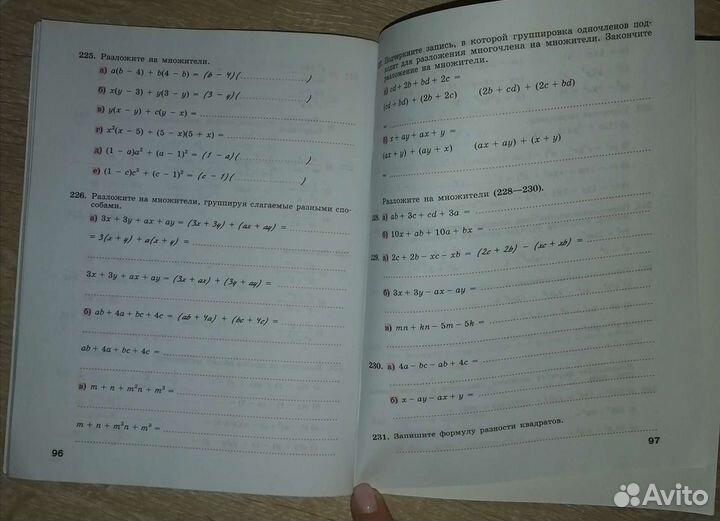 225. Разложите на множители.
а) a(b − 4) + b(4 − b) = (b − 4)(..............)
б) x(y − 3) + y(3 − y) = (3 − y)(..............)
в) y(x − y) + c(y − x) = ..............
г) x²(x − 5) + (5 − x)(5 + x) = ..............
д) (1 − a)a² + (a − 1)² = (1 − a)(..............)
е) (1 − c)c² + (c − 1)² = (c − 1)(..............)
226. Разложите на множители, группируя слагаемые разными спо-
собами.
а) 3x + 3y + ax + ay = (3x + 3y) + (ax + ay) =
= 3(x + y) + a(x + y) = ..............
3x + 3y + ax + ay = (3x + ax) + (3y + ay) = ..............
б) ab + 4a + bc + 4c = (ab + 4a) + (bc + 4c) = ..............
ab + 4a + bc + 4c = ..............
в) m + n + m²n + m³ = ..............
m + n + m²n + m³ = ..............
96
Подчеркните запись, в которой группировка одночленов под-
ходит для разложения многочлена на множители. Закончите
разложение на множители.
а) cd + 2b + bd + 2c =
(cd + bd) + (2b + 2c) (2b + cd) + (2c + bd)
= ..............
б) x + ay + ax + y =
(ax + y) + (ay + x) (ax + ay) + (x + y)
= ..............
Разложите на множители (228—230).
228. а) ab + 3c + cd + 3a = ..............
б) 10x + ab + 10a + bx = ..............
229. а) 2c + 2b − xc − xb = (2c + 2b) − (xc + xb) = ..............
б) 3x + 3y − ax − ay = ..............
в) mn + kn − 5m − 5k = ..............
230. а) 4a − bc − ab + 4c = ..............
б) x − ay − ax + y = ..............
231. Запишите формулу разности квадратов.
97
Avito